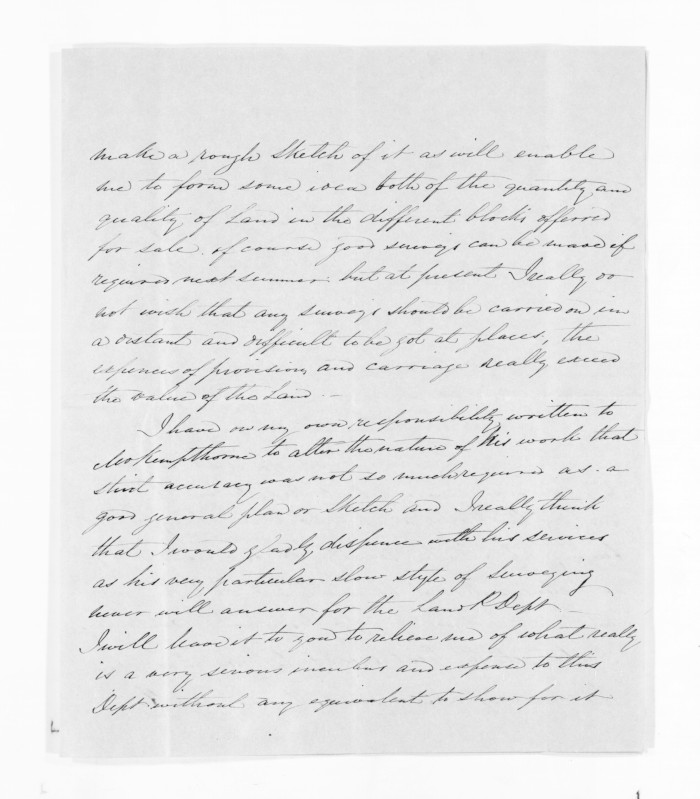 make a rough Sketch of it as will enable
me to form some idea both of the quantity and
quality of Land in the different blocks offerred
for sale. of course good surveys can be made if
required next summer but at present I really do
not wish that any surveys should be carried on in
a distant and difficult to be got at places, the
expences of provision and carriage really exceed
the value of the Land. —
I have on my own responsibility written to
Mr Kempthorne to alter the nature of his work that
strict accuracy was not so much required as a
good general plan or Sketch and I really think
that I would gladly dispence with his services
as his very particular slow style of Surveying
never will answer for the Land P. Dept —
I will leave it to you to relieve me of what really
is a very serious incubus and expense to this
Dept without any equivalent to show for it